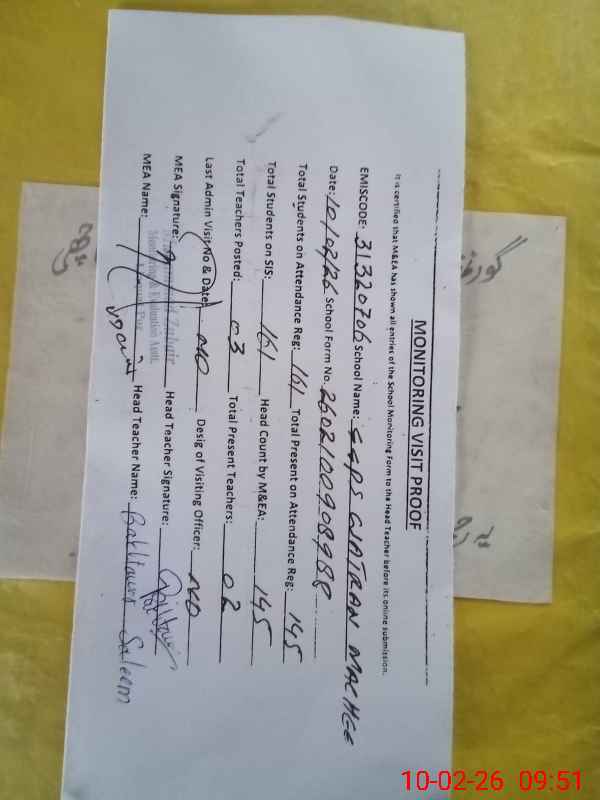 MONITORING VISIT PROOF
It is certified that M&EA has shown all entries of the School Monitoring Form to the Head Teacher before its online submission.
EMISCODE: 31320706 School Name: GGPS MACHEE
Date: 10/02/26 School Form No. 2602100908988
Total Students on Attendance Reg: 161 Total Present on Attendance Reg: 145
Total Students on SIS: 161 Head Count by M&EA: 145
Total Teachers Posted: 03 Total Present Teachers: 02
Last Admin Visit No & Date: NO Desig of Visiting Officer: NO
MEA Signature: Head Teacher Signature:
Monitoring & Evaluation Asstt.
MEA Name: Head Teacher Name: Saleem
10-02-26 09:51